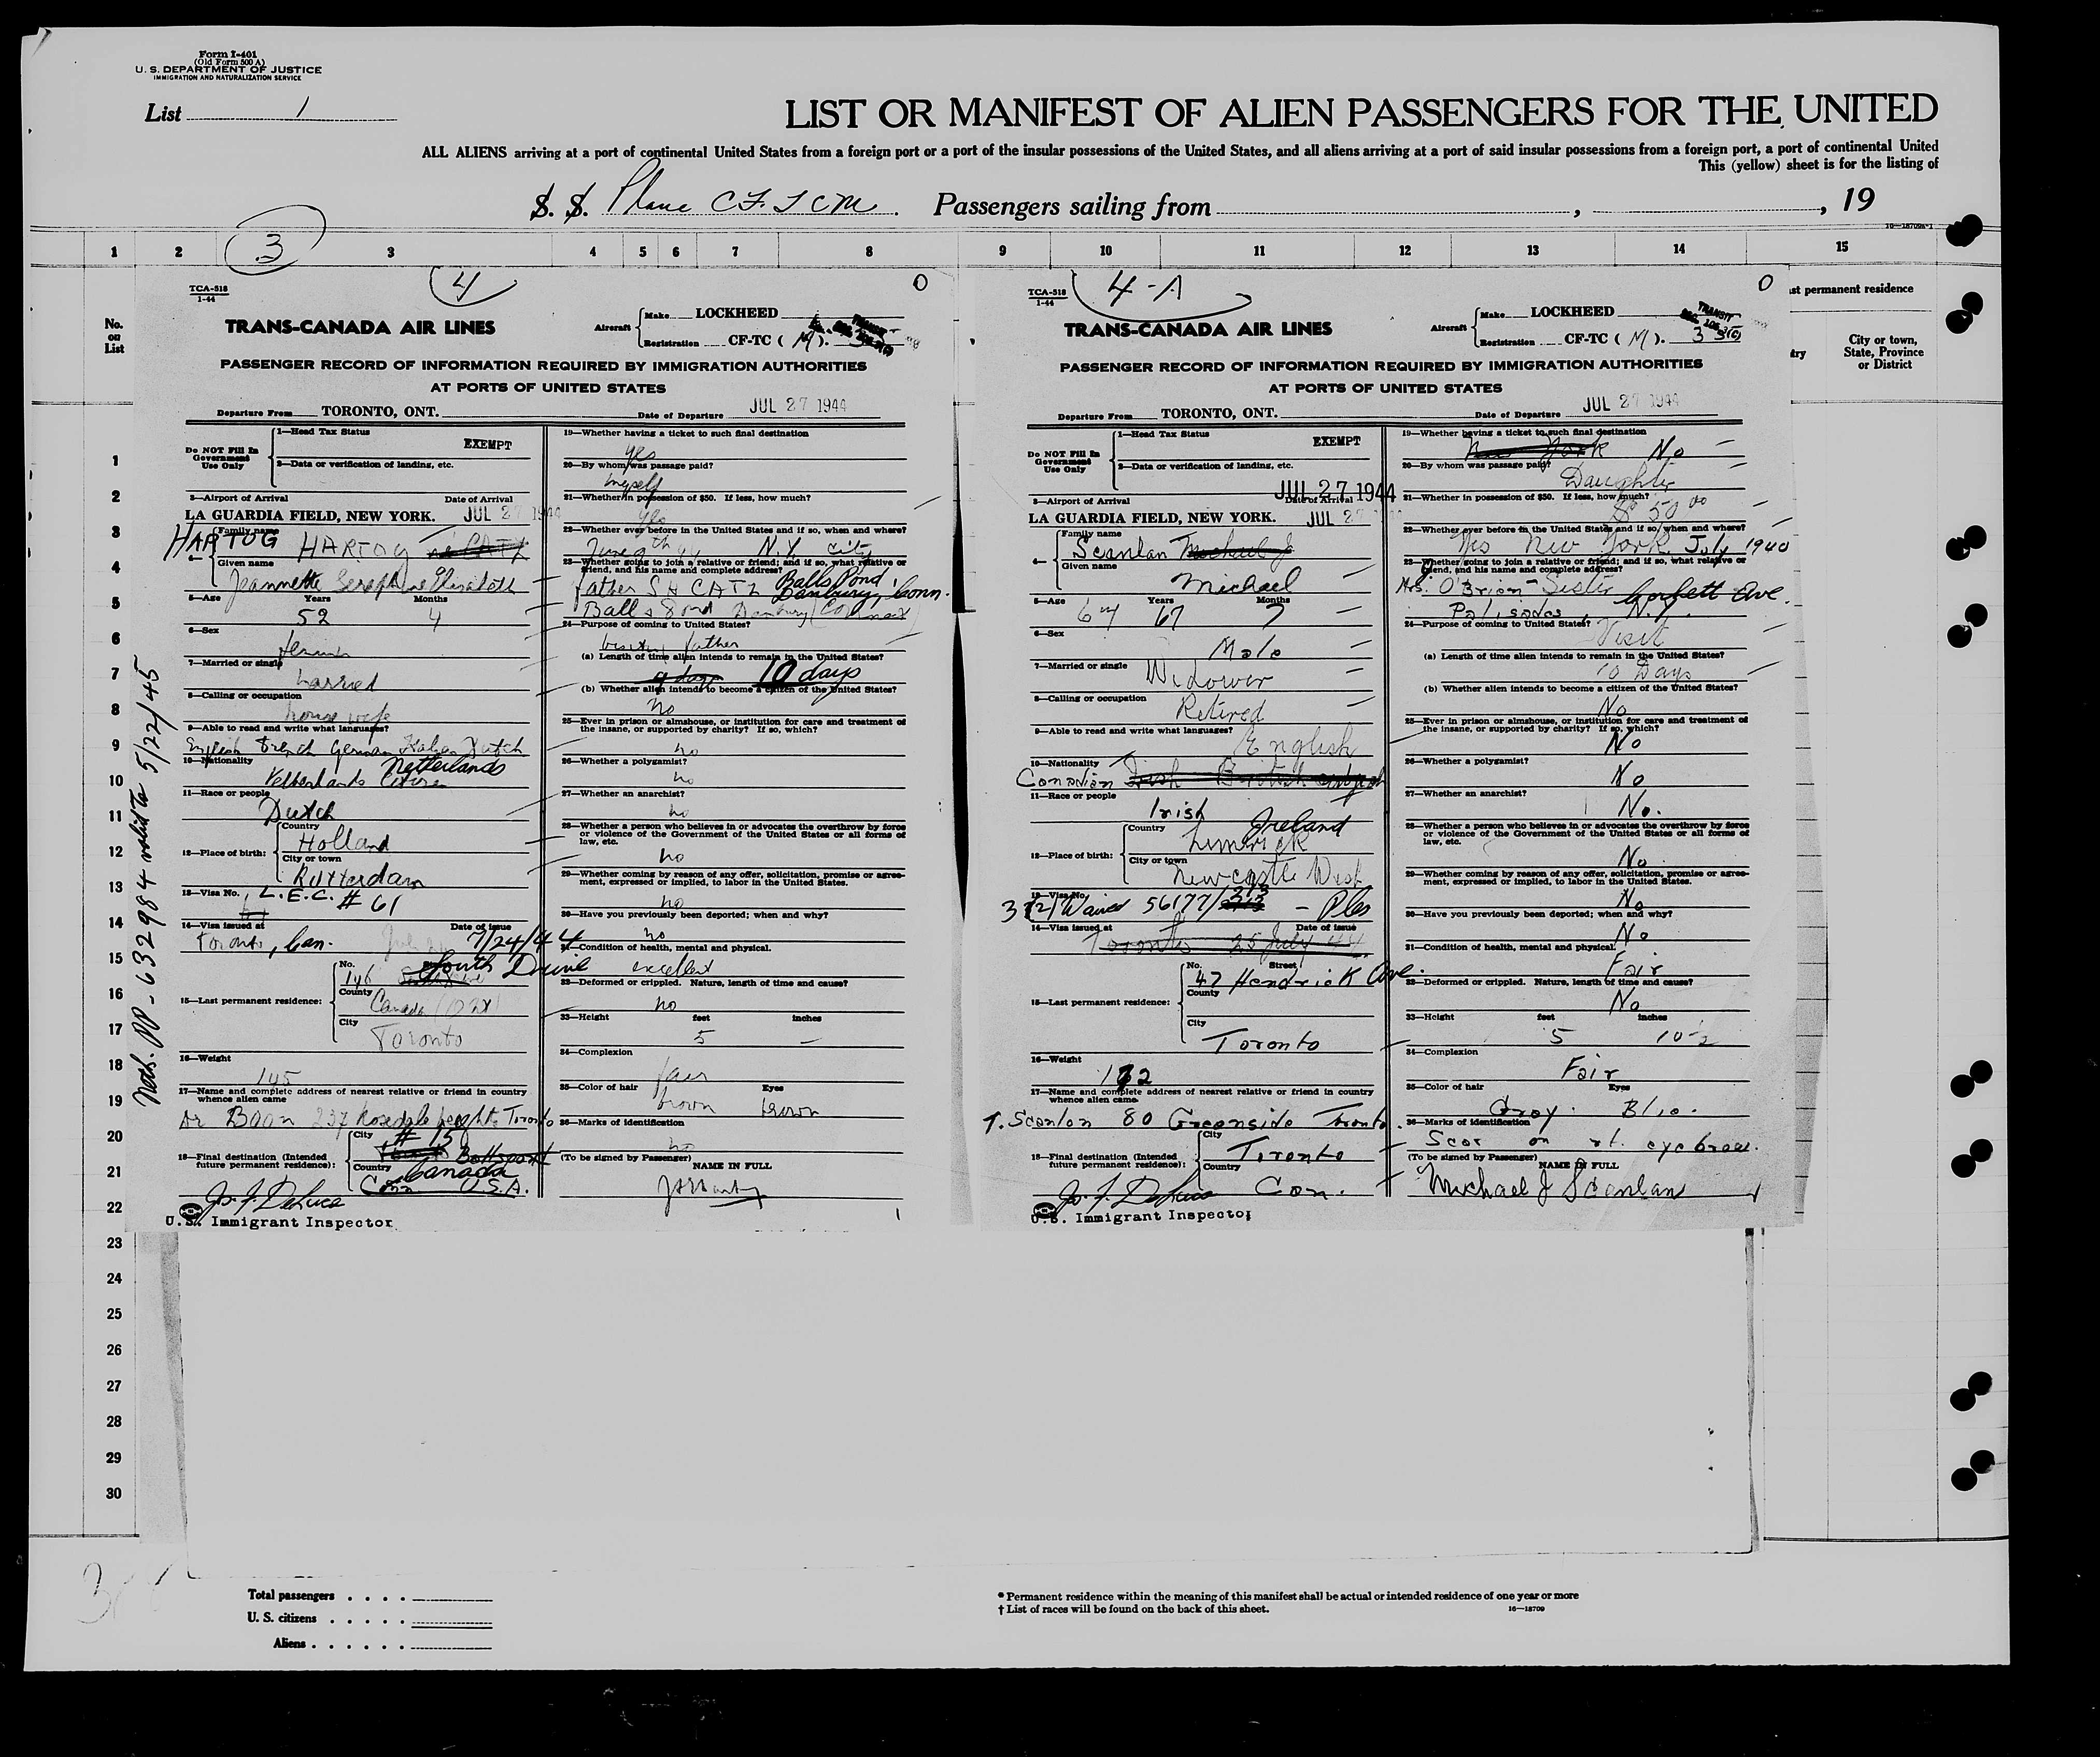 Form I-401
(Old Form 500 A)
U. S. DEPARTMENT OF JUSTICE
IMMIGRATION AND NATURALIZATION SERVICE
List 1
LIST OR MANIFEST OF ALIEN PASSENGERS FOR THE UNITED
ALL ALIENS arriving at a port of continental United States from a foreign port or a port of the insular possessions of the United States, and all aliens arriving at a port of said insular possessions from a foreign port, a port of continental United
This (yellow) sheet is for the listing of
S. S. Plane CF. TCM. Passengers sailing from , , 19
1 2 3 4 5 6 7 8 9 10 11 12 13 14 15
3
No. on List
st permanent residence
try
City or town, State, Province or District
1
2
3
4
5
6
7
8
9
10
11
12
13
14
15
16
17
18
19
20
21
22
23
24
25
26
27
28
29
30
Neth. PP-632984 valid to 5/22/45
4
TCA-518
1-44
TRANS-CANADA AIR LINES
Aircraft Make LOCKHEED
Registration CF-TC ( M ).
PASSENGER RECORD OF INFORMATION REQUIRED BY IMMIGRATION AUTHORITIES
AT PORTS OF UNITED STATES
Departure From TORONTO, ONT. Date of Departure JUL 27 1944
Do NOT Fill In Government Use Only
1—Head Tax Status EXEMPT
2—Data or verification of landing, etc.
3—Airport of Arrival Date of Arrival
LA GUARDIA FIELD, NEW YORK. JUL 27 1944
4— Family name HARTOG HARTOG
Given name
Jeannette Seraphine Elizabeth
5—Age Years Months
52 4
6—Sex
7—Married or single
Married
8—Calling or occupation
house wife
9—Able to read and write what languages?
English French German Italian Dutch
10—Nationality Netherlands
Netherlands Citizen
11—Race or people
Dutch
12—Place of birth: Country
Holland
City or town
Rotterdam
13—Visa No. L.E.C. # 61
14—Visa issued at Date of issue
Toronto, Can. 7/24/44
15—Last permanent residence: No. 146 South Drive
County Canada (Ont)
City
Toronto
16—Weight
145
17—Name and complete address of nearest relative or friend in country whence alien came
Dr Boon 237 Rosedale Heights Toronto
18—Final destination (Intended future permanent residence): City # 15
Country Canada
Conn U.S.A.
U.S. Immigrant Inspector
19—Whether having a ticket to such final destination
yes
20—By whom was passage paid?
myself
21—Whether in possession of $50. If less, how much?
yes
22—Whether ever before in the United States and if so, when and where?
N.Y. city
23—Whether going to join a relative or friend; and if so, what relative or friend, and his name and complete address?
father S H CATZ Balls Pond, Danbury, Conn.
24—Purpose of coming to United States?
visiting father
(a) Length of time alien intends to remain in the United States?
10 days
(b) Whether alien intends to become a citizen of the United States?
No
25—Ever in prison or almshouse, or institution for care and treatment of the insane, or supported by charity? If so, which?
no
26—Whether a polygamist?
no
27—Whether an anarchist?
no
28—Whether a person who believes in or advocates the overthrow by force or violence of the Government of the United States or all forms of law, etc.
no
29—Whether coming by reason of any offer, solicitation, promise or agreement, expressed or implied, to labor in the United States.
no
30—Have you previously been deported; when and why?
no
31—Condition of health, mental and physical.
excellent
32—Deformed or crippled. Nature, length of time and cause?
no
33—Height feet inches
5 —
34—Complexion
fair
35—Color of hair Eyes
brown brown
36—Marks of identification
no
(To be signed by Passenger) NAME IN FULL
4-A
TCA-518
1-44
TRANS-CANADA AIR LINES
Aircraft Make LOCKHEED
Registration CF-TC ( M ).
PASSENGER RECORD OF INFORMATION REQUIRED BY IMMIGRATION AUTHORITIES
AT PORTS OF UNITED STATES
Departure From TORONTO, ONT. Date of Departure JUL 27 1944
Do NOT Fill In Government Use Only
1—Head Tax Status EXEMPT
2—Data or verification of landing, etc.
JUL 27 1944
3—Airport of Arrival Date of Arrival
LA GUARDIA FIELD, NEW YORK. JUL 27
4— Family name
Scanlan Michael J
Given name
Michael
5—Age Years Months
67 7
6—Sex
Male
7—Married or single
Widower
8—Calling or occupation
Retired
9—Able to read and write what languages?
English
10—Nationality
Canadian Irish British subject
11—Race or people
Irish
12—Place of birth: Country Ireland
Limerick
City or town
Newcastle West
13—Visa No.
Waived 56177/273
14—Visa issued at Date of issue
Toronto 25 July 44
15—Last permanent residence: No. Street
47 Hendrick Ave.
County
City
Toronto
16—Weight
17—Name and complete address of nearest relative or friend in country whence alien came
T. Scanlon 80 Greenside Toronto.
18—Final destination (Intended future permanent residence): City
Toronto
Country
Can.
U.S. Immigrant Inspector
19—Whether having a ticket to such final destination
New York No
20—By whom was passage paid?
Daughter
21—Whether in possession of $50. If less, how much?
$50 00
22—Whether ever before in the United States and if so, when and where?
Yes New York July 1940
23—Whether going to join a relative or friend; and if so, what relative or friend, and his name and complete address?
Mrs. O'Brien - Sister Corbett Ave.
Palisades, N.Y.
24—Purpose of coming to United States?
Visit
(a) Length of time alien intends to remain in the United States?
10 Days
(b) Whether alien intends to become a citizen of the United States?
No
25—Ever in prison or almshouse, or institution for care and treatment of the insane, or supported by charity? If so, which?
No
26—Whether a polygamist?
No
27—Whether an anarchist?
No.
28—Whether a person who believes in or advocates the overthrow by force or violence of the Government of the United States or all forms of law, etc.
No
29—Whether coming by reason of any offer, solicitation, promise or agreement, expressed or implied, to labor in the United States.
No
30—Have you previously been deported; when and why?
No
31—Condition of health, mental and physical.
Fair
32—Deformed or crippled. Nature, length of time and cause?
No
33—Height feet inches
5 10-2
34—Complexion
Fair
35—Color of hair Eyes
Gray. Blue.
36—Marks of identification
Scar on rt. eyebrow.
(To be signed by Passenger) NAME IN FULL
Michael J Scanlan
Total passengers
U. S. citizens
Aliens
* Permanent residence within the meaning of this manifest shall be actual or intended residence of one year or more
† List of races will be found on the back of this sheet.
16—18709